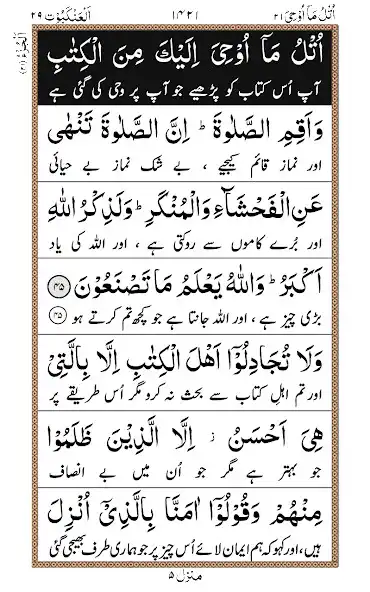 اُتْلُ مَآ اُوْحِیَ ۲۱ ۱۴۲۱ اَلْعَنْکَبُوْت ۲۹
اُتْلُ مَآ اُوْحِیَ اِلَیْکَ مِنَ الْکِتٰبِ
آپ اُس کتاب کو پڑھیے جو آپ پر وحی کی گئی ہے
وَاَقِمِ الصَّلٰوةَ ؕ اِنَّ الصَّلٰوةَ تَنْهٰی
اور نماز قائم کیجیے ، بے شک نماز بے حیائی
عَنِ الْفَحْشَآءِ وَالْمُنْکَرِ ؕ وَلَذِکْرُ اللّٰهِ
اور بُرے کاموں سے روکتی ہے ، اور اللہ کی یاد
اَکْبَرُ ؕ وَاللّٰهُ یَعْلَمُ مَا تَصْنَعُوْنَ ۴۵
بڑی چیز ہے ، اور اللہ جانتا ہے جو کچھ تم کرتے ہو ۴۵
وَلَا تُجَادِلُوْۤا اَهْلَ الْکِتٰبِ اِلَّا بِالَّتِیْ
اور تم اہلِ کتاب سے بحث نہ کرو مگر اُس طریقے پر
هِیَ اَحْسَنُ ۫ اِلَّا الَّذِیْنَ ظَلَمُوْا
جو بہتر ہے مگر جو اُن میں بے انصاف
مِنْهُمْ وَقُوْلُوْۤا اٰمَنَّا بِالَّذِیْۤ اُنْزِلَ
ہیں، اور کہو کہ ہم ایمان لائے اُس چیز پر جو ہماری طرف بھیجی گئی
منزل ۵